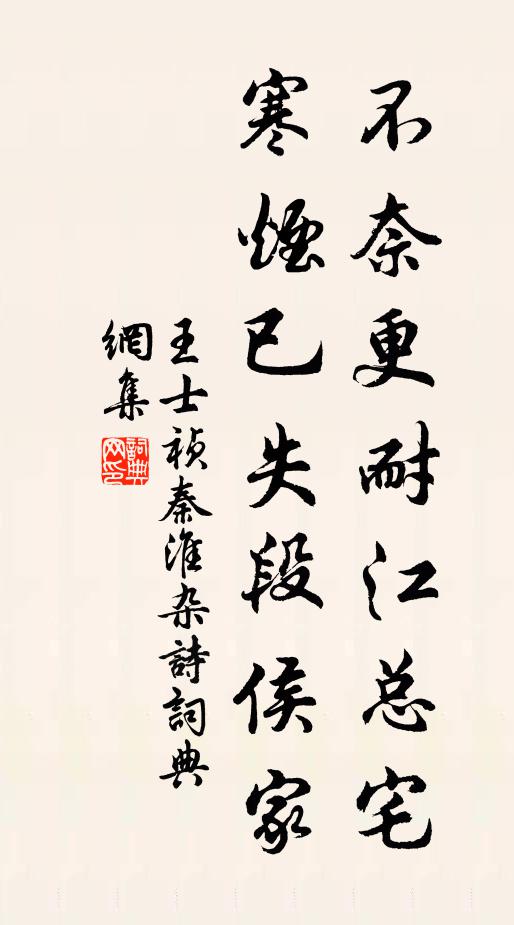 不奈更耐江总宅
寒煙已失段侯家
王士祯秦淮杂詩詞典
網集
詞典
网印